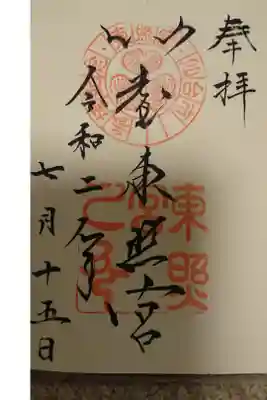 奉拝
仙臺東照宮
令和二年
七月十五日
東照
宮
之印